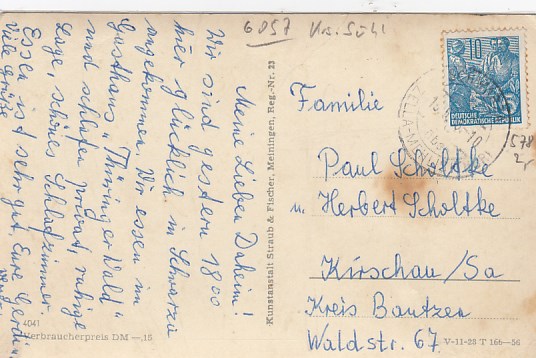 6057 Krs. Suhl
Meine Lieben Daheim!
Wir sind gestern 18 00
hier glücklich in Schwarza
angekommen. Wir essen im
Gasthaus „Thüringer Wald"
und schlafen privat, ruhige
Lage, schönes Schlafzimmer.
Essen ist sehr gut. Eure Gerda
Viele Grüße
4041
Verbraucherpreis DM —,15
Kunstanstalt Straub & Fischer, Meiningen, Reg.-Nr. 23
10
DEUTSCHE
DEMOKRATISCHE REPUBLIK
ZELLA-MEHLIS
578
Familie
Paul Scholtke
u. Herbert Scholtke
Kirschau/Sa
Kreis Bautzen
Waldstr. 67
V-11-28 T 166—56